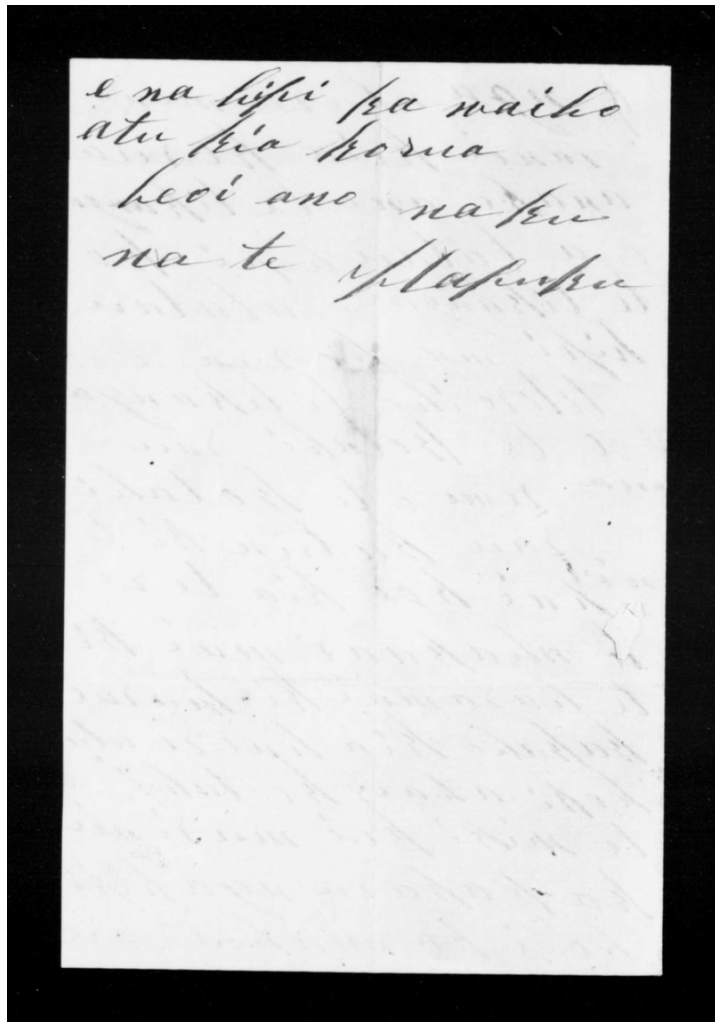 e na hipi ka waiho
atu kia korua
heoi ano naku
na te Hapuku